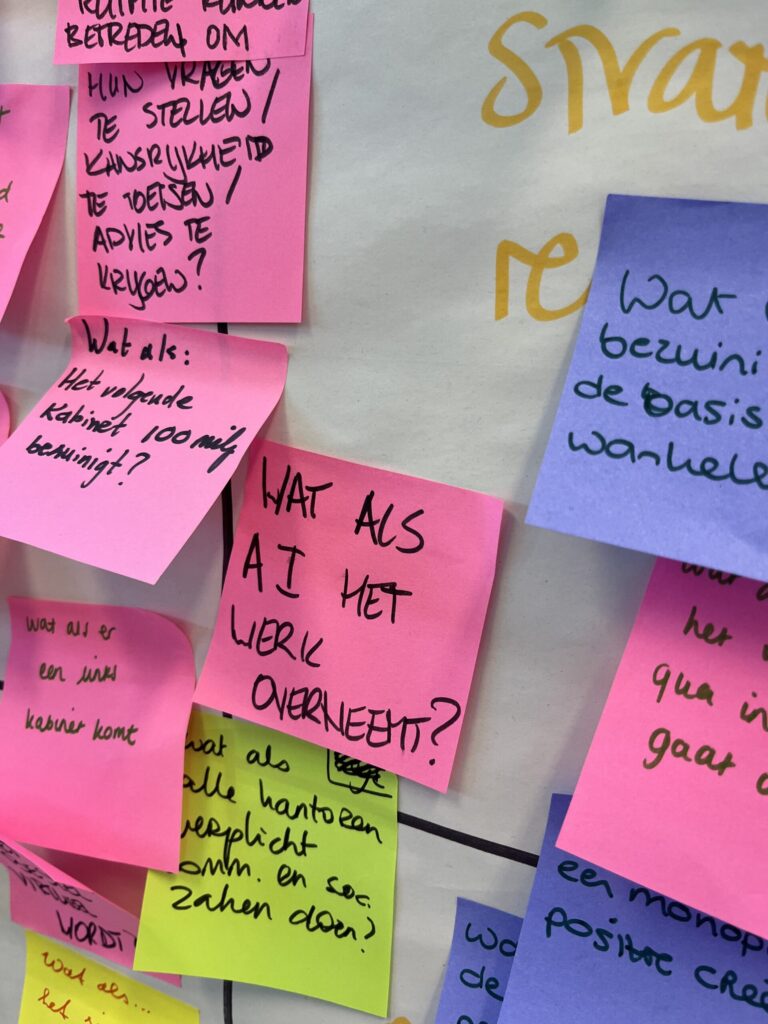 BETREDEN, OM
HUN VRAGEN
TE STELLEN/
KANSRIJKHEID
TE TOETSEN/
ADVIES TE
KRIJGEN?
Strat
re
Wat als:
Het volgende
Kabinet 100 milj
bezuinigt?
Wat
bezuini
de basis
wankele
WAT ALS
AI HET
WERK
OVERNEEMT?
wat als er
een links
kabinet komt
het
qua in
gaat
wat als
alle kantoren
verplicht
comm. en soc.
zaken doen?
een monop
positie creë
WORDT?
wat als...
het
wa
de